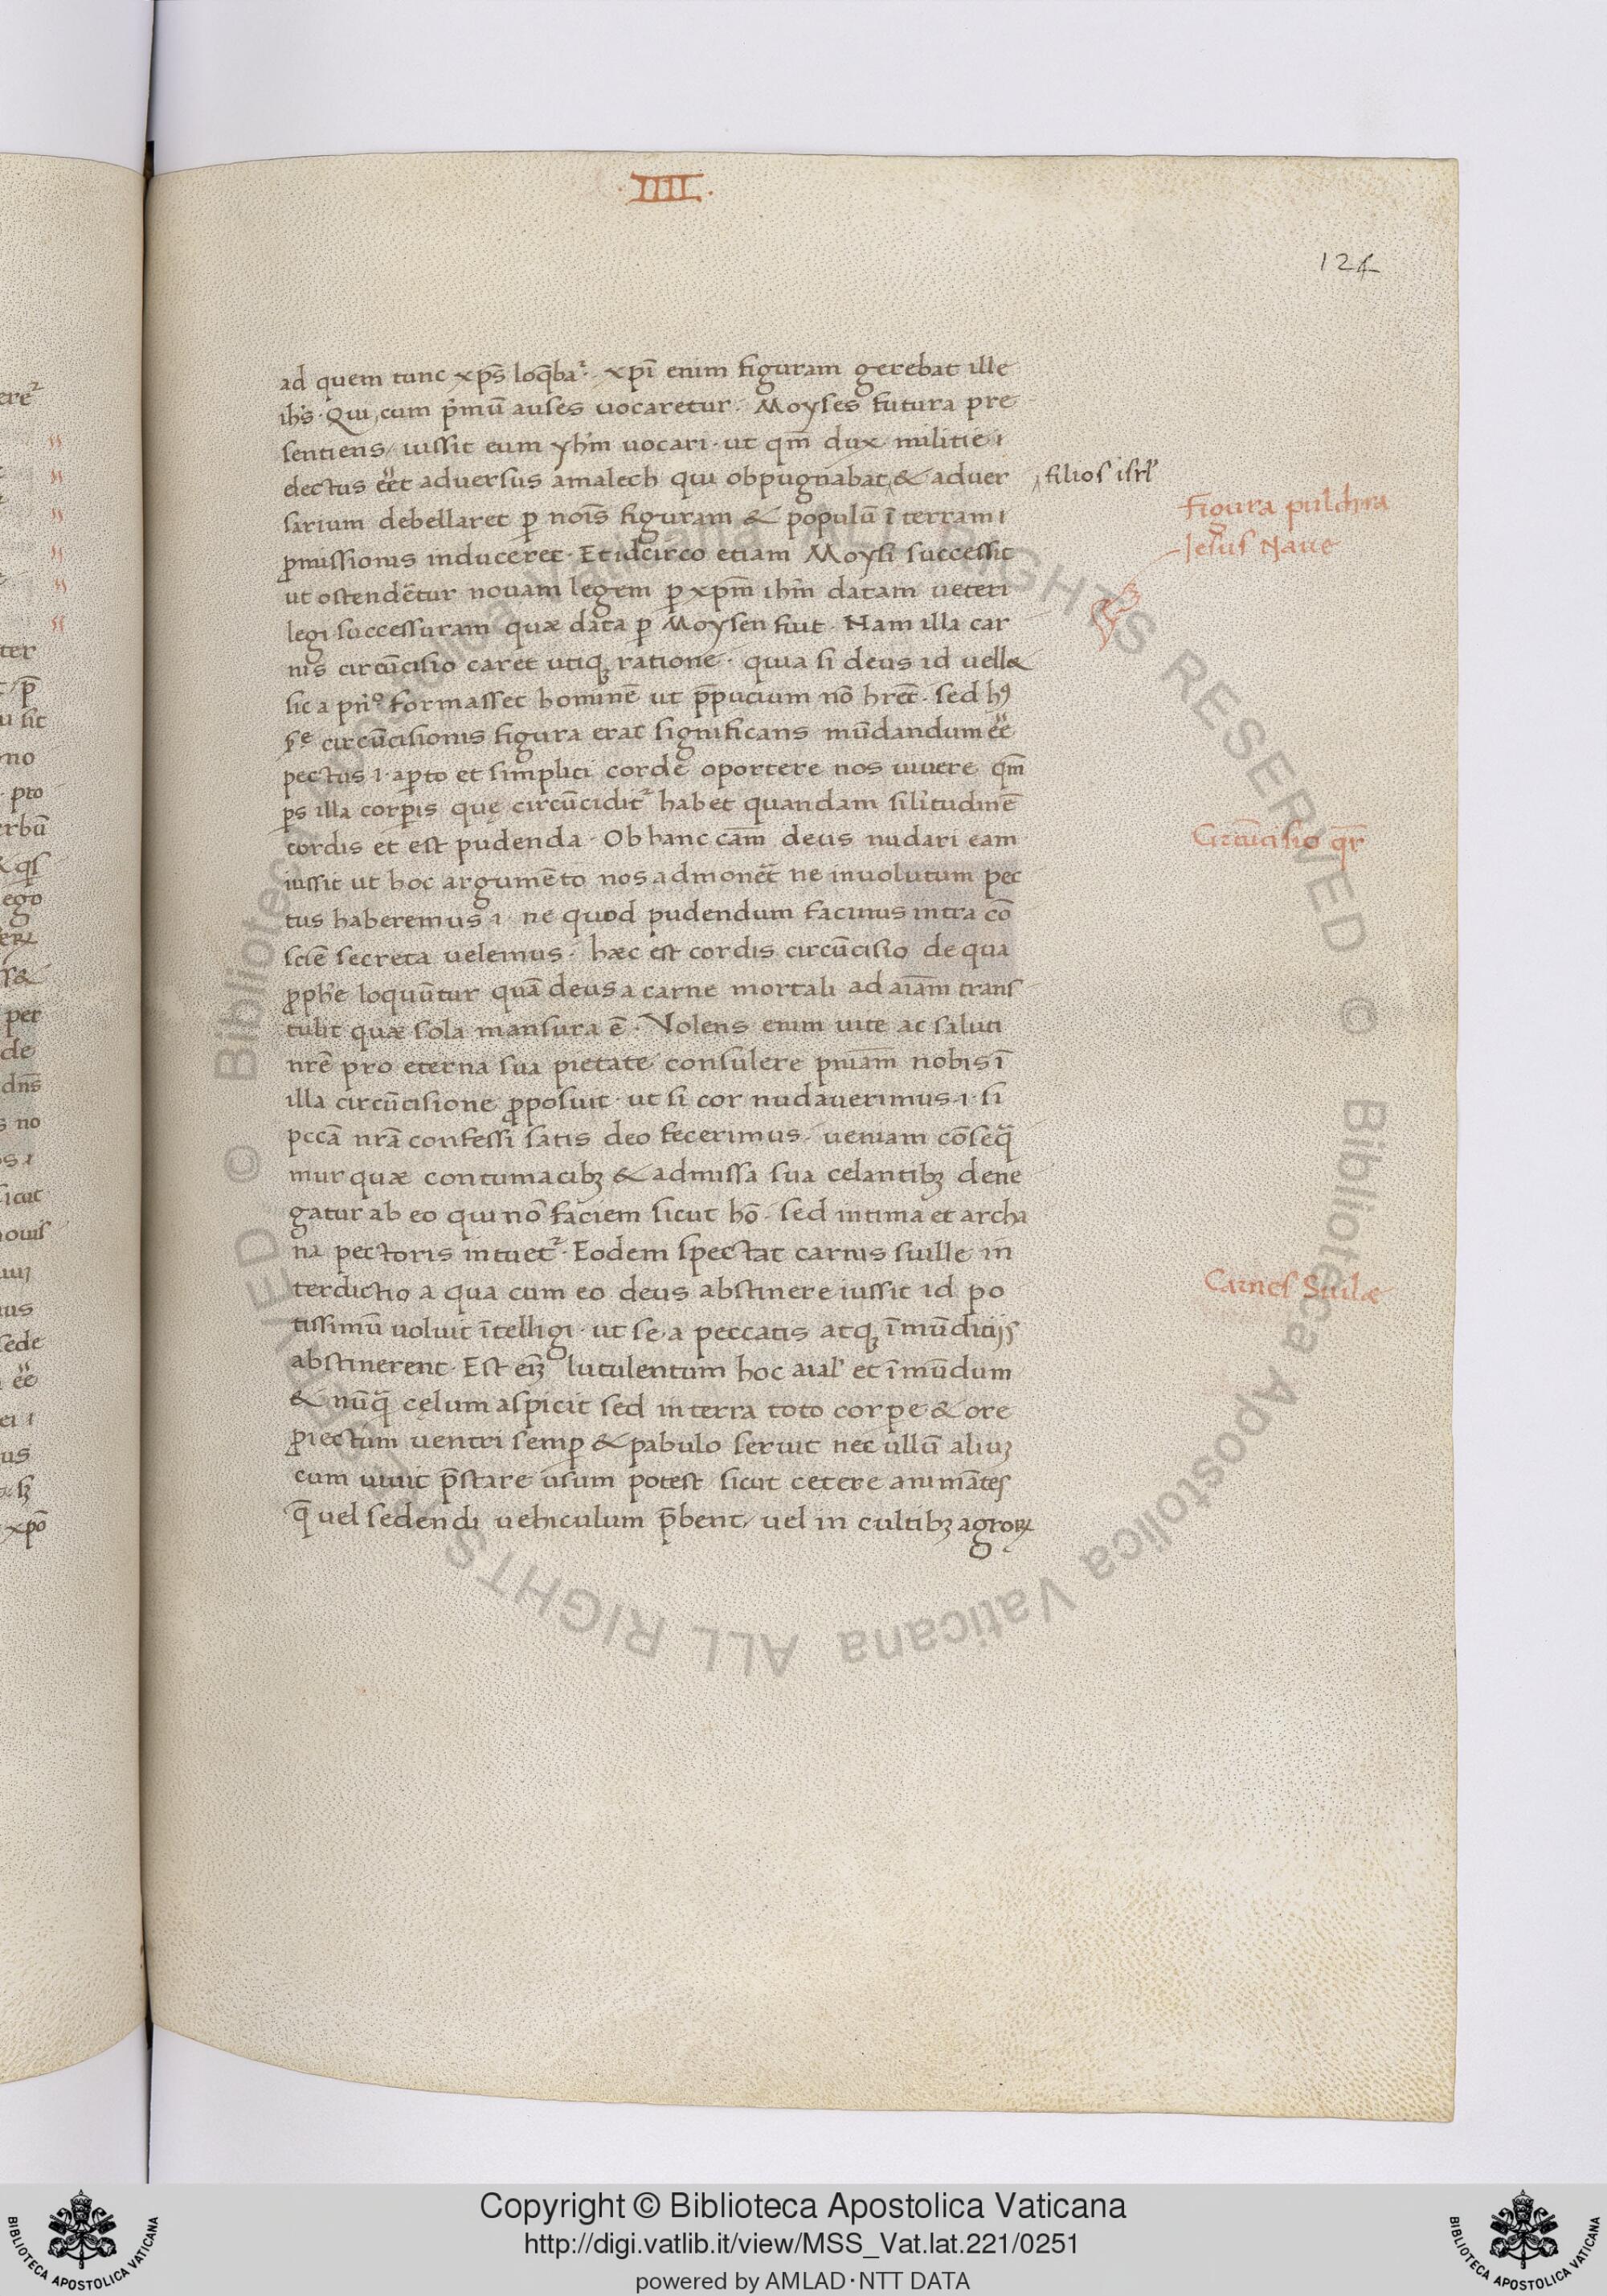 ·IIII·
124
ad quem tunc xp̄s loq̄ba². xpī enim figuram gerebat ille
ihs̄. Qui cum p̍mū auses uocaretur. Moyses futura pre
sentiens, iussit eum yhm̄ uocari. ut qm̄ dux militie ı
electus eēt aduersus amalech qui obpugnabat, & aduer
, filios isrl̄
sarium debellaret ꝑ noīs figuram & populū ī terram ı
ꝓmissionis induceret. Et idcirco etiam Moysi successit
ut ostendētur nouam legem ꝑ xpm̄ ihm̄ datam ueteri
legi successuram quæ data ꝑ Moysen fuit. Nam illa car
nis circūcisio caret utiqꝫ ratione. quia si deus id uell&
sic a pn̍º formasset hominē ut p̄pucium nō hrēt. sed hꝰ
circūcisionis figura erat significans mūdandum eē̈
pectus .ı. aꝑto et simplici corde oportere nos uiuere qm̄
ꝑs illa corꝑis quę circūcidit² habet quandam silitudinē
cordis et est pudenda. Ob hanc cām deus nudari eam
iussit ut hoc argumēto nos admonēt ne inuolutum pec
tus haberemus .ı. ne quod pudendum facinus intra cō
sciē secreta uelemus. hæc est cordis circūcisio de qua
ꝓphe loquūtur quā deus a carne mortali ad aīam trans
tulit quæ sola mansura ē. Volens enim uite ac saluti
nrē pro eterna sua pietate consulere pniam̄ nobis ī
illa circūcisione ꝓposuit. ut si cor nudauerimus .ı. si
pccā nrā confessi satis deo fecerimus, ueniam cōseq̄
mur quæ contumacibꝫ & admissa sua celantibꝫ dene
gatur ab eo qui nō faciem sicut hō. sed intima et archa
na pectoris intuet². Eodem spectat carnis suille in
terdictio a qua cum eo deus abstinere iussit id po
tissimū uoluit ītelligi. ut se a peccatis atqꝫ īmūditijs
abstinerent. Est eīꝫ lutulentum hoc aial̍ et īmūdum
& nūq̄ cęlum aspicit sed in terra toto corpe & ore
ꝓiectum uentri semꝑ & pabulo seruit nec ullū aliuꝫ
cum uiuit p̄stare usum potest sicut cetere animātes
q̄ uel sedendi uehiculum p̄bent, uel in cultibꝫ agroꝝ
Figura pulchra
Jesus Naue
Circūcisio qr̄
Carnes Suilæ
Copyright © Biblioteca Apostolica Vaticana
http://digi.vatlib.it/view/MSS_Vat.lat.221/0251
powered by AMLAD·NTT DATA
BIBLIOTECA APOSTOLICA VATICANA
BIBLIOTECA APOSTOLICA VATICANA
© Biblioteca Apostolica Vaticana ALL RIGHTS RESERVED © Biblioteca Apostolica Vaticana ALL RIGHTS RESERVED